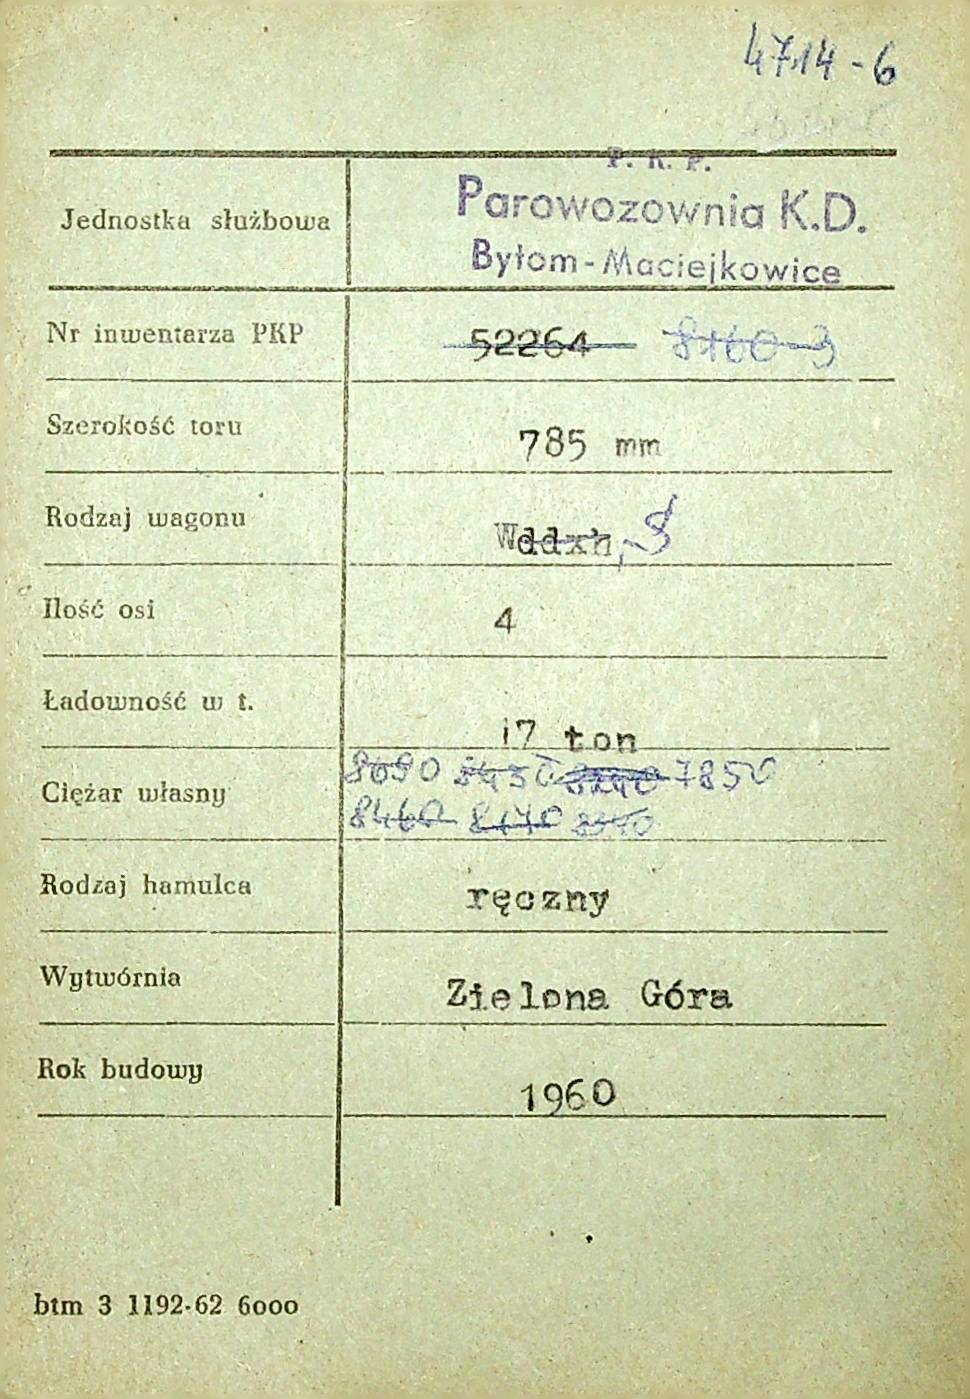 4714-6
P. K. P.
Jednostka służbowa Parowozownia K.D.
Bytom-Maciejkowice
Nr inwentarza PKP 52264 8160-3
Szerokość toru 785 mm
Rodzaj wagonu Wddxh, S
Ilość osi 4
Ładowność w t. 17 ton
8450 7850
Ciężar własny
8460 8170
Rodzaj hamulca ręczny
Wytwórnia Zielona Góra
Rok budowy 1960
btm 3 1192-62 6000